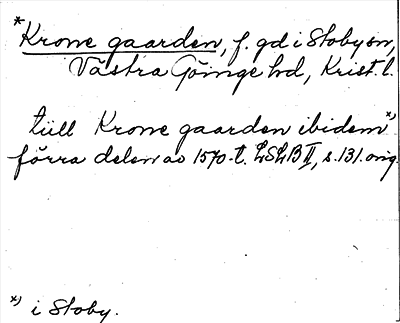 * Krone gaarden, f. gd i Stoby sn,
Västra Göinge hd, Krist. l.
tüll Krone gaarden ibidem x)
förra delen av 1570-t. LSLB II, s. 131. orig.
x) i Stoby.